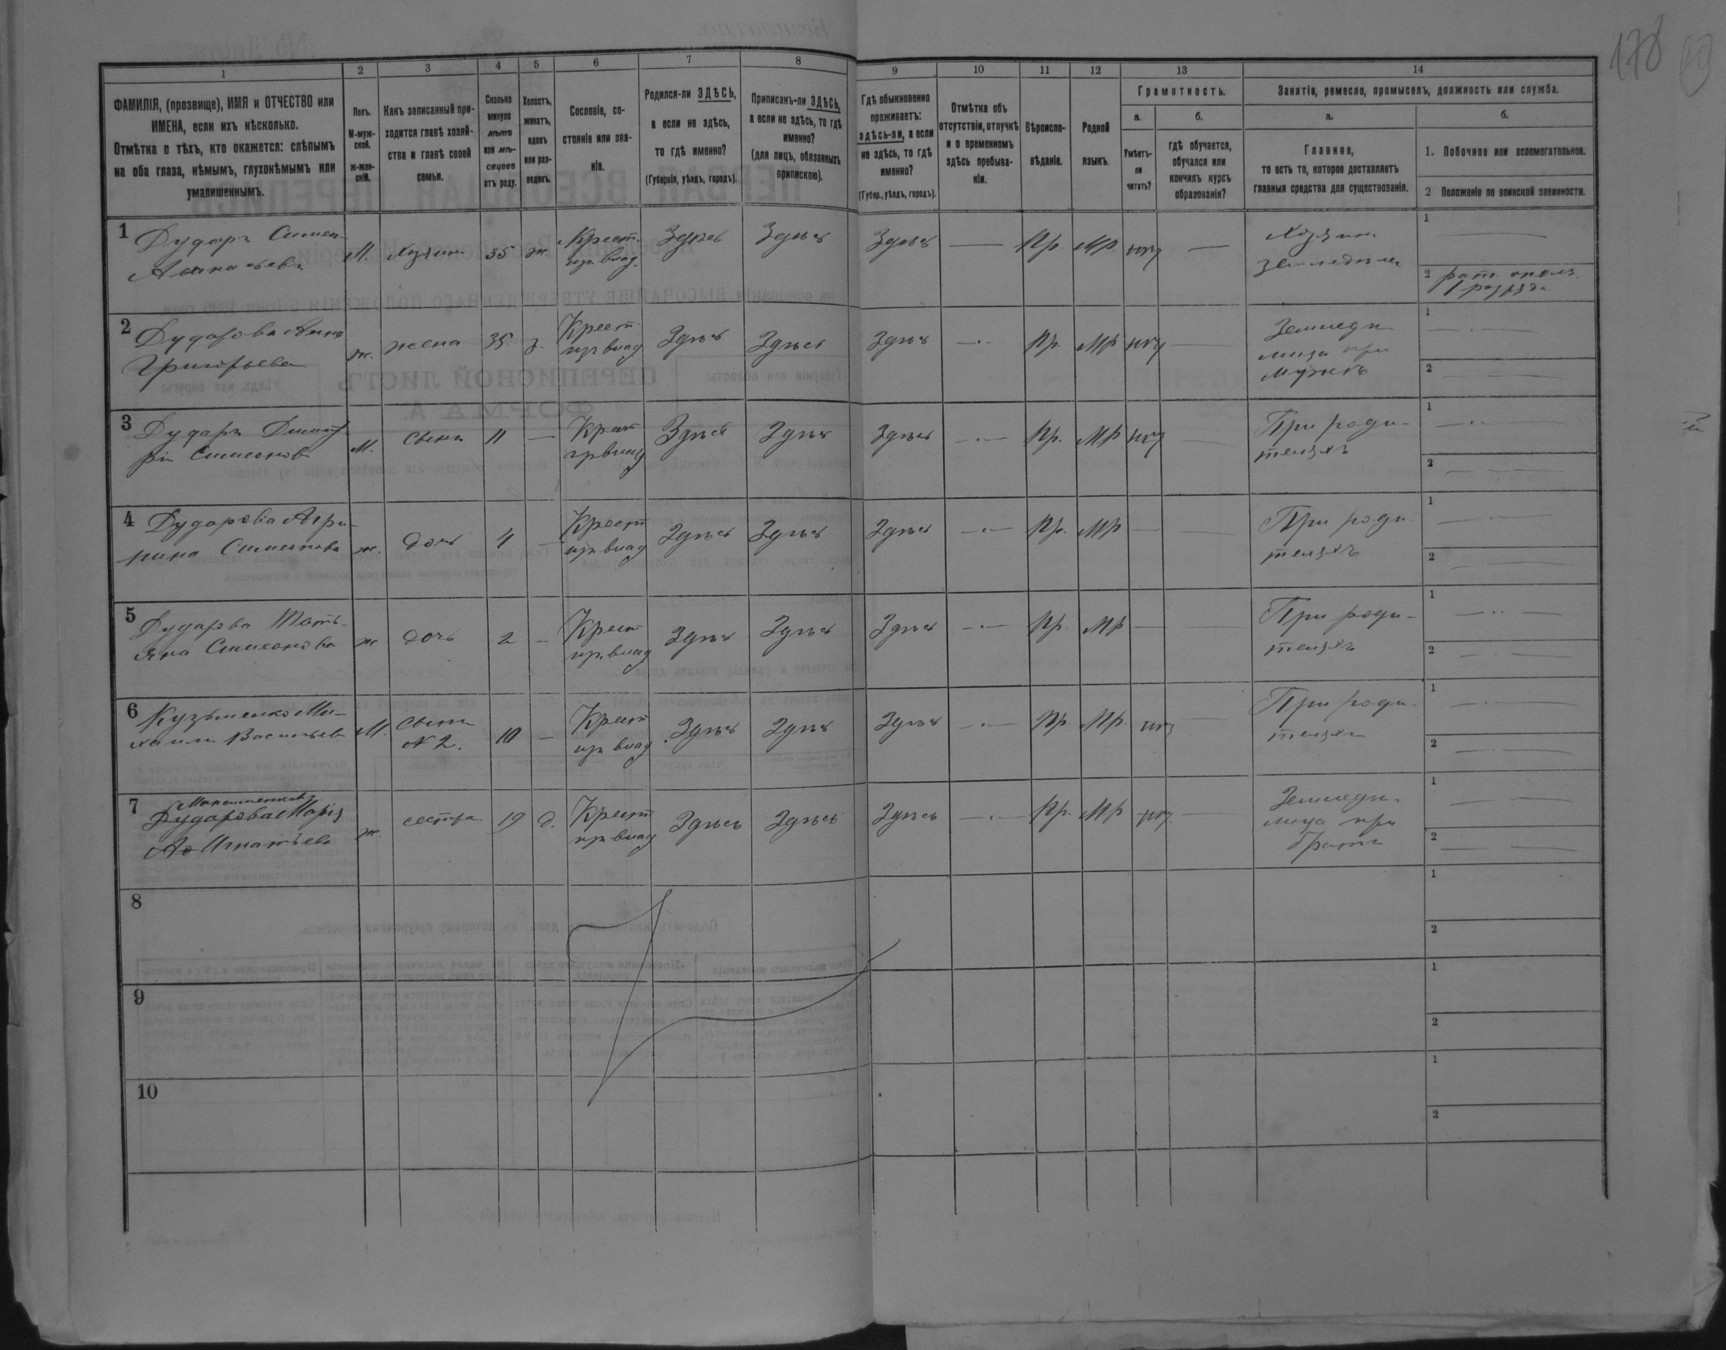 178
1
2
3
4
5
6
7
8
9
10
11
12
13
14
ФАМИЛІЯ, (прозвище), ИМЯ и ОТЧЕСТВО или
ИМЕНА, если ихъ нѣсколько.
Отмѣтка о тѣхъ, кто окажется: слѣпымъ
на оба глаза, нѣмымъ, глухонѣмымъ или
умалишеннымъ.
Полъ.
М-муж-
ской.
Ж-жен-
скій.
Какъ записанный при-
ходится главѣ хозяй-
ства и главѣ своей
семьи.
Сколько
минуло
лѣтъ
или мѣ-
сяцевъ
отъ роду.
Холостъ,
женатъ,
вдовъ
или раз-
веденъ.
Сословіе, со-
стояніе или зва-
ніе.
Родился-ли ЗДѢСЬ,
а если не здѣсь,
то гдѣ именно?
(Губернія, уѣздъ, городъ).
Приписанъ-ли ЗДѢСЬ,
а если не здѣсь, то гдѣ
именно?
(для лицъ, обязанныхъ
припискою).
Гдѣ обыкновенно
проживаетъ:
здѣсь-ли, а если
не здѣсь, то гдѣ
именно?
(Губер., уѣздъ, городъ).
Отмѣтка объ
отсутствіи, отлучкѣ
и о временномъ
здѣсь пребыва-
ніи.
Вѣроиспо-
вѣданіе.
Родной
языкъ.
Грамотность.
а.
Умѣетъ-
ли
читать?
б.
гдѣ обучается,
обучался или
кончилъ курсъ
образованія?
Занятіе, ремесло, промыселъ, должность или служба.
а.
Главное,
то есть то, которое доставляетъ
главныя средства для существованія.
б.
1. Побочное или вспомогательное.
2 Положеніе по воинской повинности.
1 Дударъ Симеон
М. хозяин 35 ж. Крест. Здѣсь Здѣсь Здѣсь — Пр. МР нѣт — Хозяин
из влад.
земледѣл
1 —
2 рат. опол.
1 разряда
2 Дударова Анна
Григорьева
ж. жена 35 з. Крест Здѣсь Здѣсь Здѣсь — Пр. МР нѣт —
из влад
Земледѣ
лица при
мужѣ
1 —
2 —
3 Дударъ Дмит
рій Симеонов
М. сынъ 11 — Крест Здѣсь Здѣсь Здѣсь — Пр. МР нѣт —
из влад
При роди-
теляхъ
1 —
2 —
4 Дударова Агри-
пина Симеонова
ж. дочь 4 — Крест Здѣсь Здѣсь Здѣсь — Пр. МР —
из влад
При роди
теляхъ
1 —
2 —
5 Дударова Тать-
яна Симеонова
ж дочь 2 — Крест Здѣсь Здѣсь Здѣсь — Пр. МР —
из влад
При роди-
теляхъ
1 —
2 —
6 Кузьменко Ми-
хаилъ Васильев
М. сынъ 10 — Крест Здѣсь Здѣсь Здѣсь — Пр МР нѣт —
№2.
из влад
При роди-
телях
1 —
2 —
7 Дударова Марія
Игнатьева
ж. сестра 19 д. Крест Здѣсь Здѣсь Здѣсь — Пр. МР нѣт —
из влад
Земледѣ-
лица при
братѣ
1 —
2 —
8
1
2
9
1
2
10
1
2